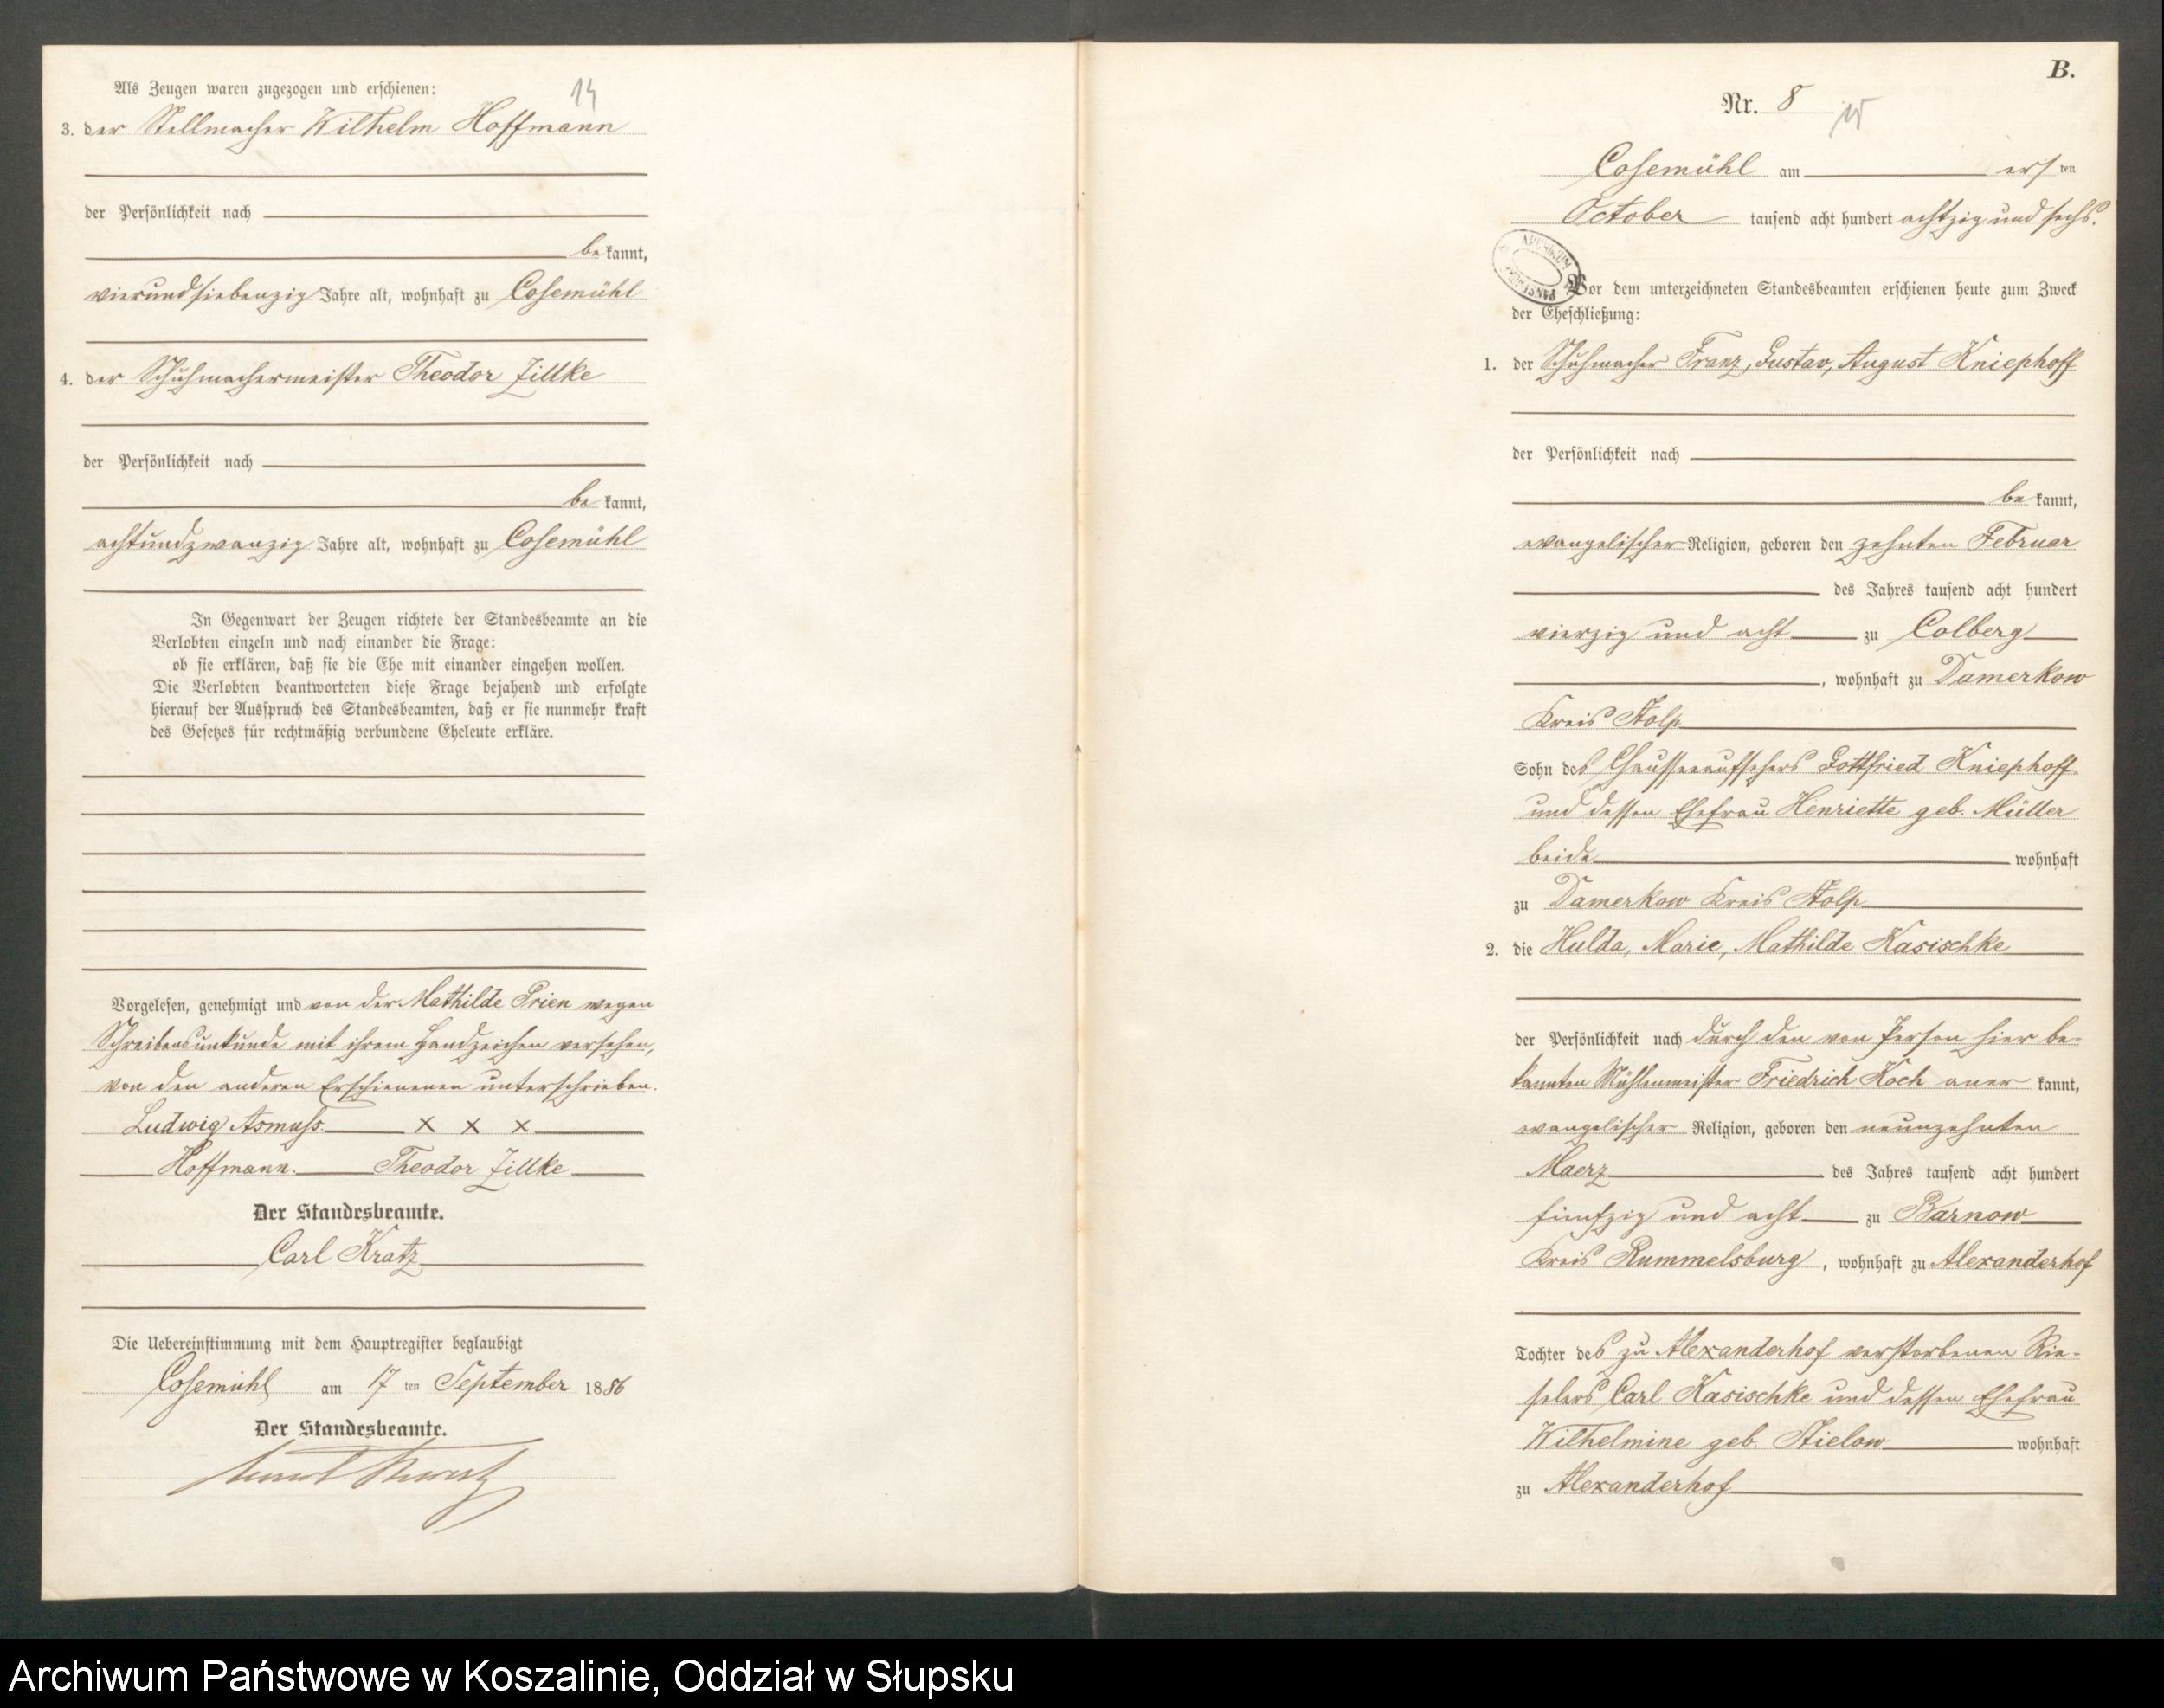 Als Zeugen waren zugezogen und erschienen:
14
3. der Stellmacher Wilhelm Hoffmann
der Persönlichkeit nach
bekannt,
vierundsiebenzig Jahre alt, wohnhaft zu Cosemühl
4. der Schuhmachermeister Theodor Zillke
der Persönlichkeit nach
bekannt,
achtundzwanzig Jahre alt, wohnhaft zu Cosemühl
In Gegenwart der Zeugen richtete der Standesbeamte an die
Verlobten einzeln und nach einander die Frage:
ob sie erklären, daß sie die Ehe mit einander eingehen wollen.
Die Verlobten beantworteten diese Frage bejahend und erfolgte
hierauf der Ausspruch des Standesbeamten, daß er sie nunmehr kraft
des Gesetzes für rechtmäßig verbundene Eheleute erkläre.
Vorgelesen, genehmigt und von der Mathilde Prien wegen
Schreibensunkunde mit ihrem Handzeichen versehen,
von den anderen Erschienenen unterschrieben.
Ludwig Asmuss. x x x
Hoffmann. Theodor Zillke
Der Standesbeamte.
Carl Kratz
Die Uebereinstimmung mit dem Hauptregister beglaubigt
Cosemühl am 17 ten September 1886
Der Standesbeamte.
B.
Nr. 8
Cosemühl am ersten
October tausend acht hundert achtzig und sechs.
ARCHIWUM
Vor dem unterzeichneten Standesbeamten erschienen heute zum Zweck
der Eheschließung:
1. der Schuhmacher Franz, Gustav, August Kniephoff
der Persönlichkeit nach
bekannt,
evangelischer Religion, geboren den zehnten Februar
des Jahres tausend acht hundert
vierzig und acht zu Colberg
, wohnhaft zu Damerkow
Kreis Stolp
Sohn des Chausseeaufsehers Gottfried Kniephoff
und dessen Ehefrau Henriette geb. Müller
beide wohnhaft
zu Damerkow Kreis Stolp
2. die Hulda, Marie, Mathilde Kasischke
der Persönlichkeit nach durch den von Person hier be-
kannten Mühlenmeister Friedrich Koch aner kannt,
evangelischer Religion, geboren den neunzehnten
Maerz des Jahres tausend acht hundert
fünfzig und acht zu Barnow
Kreis Rummelsburg, wohnhaft zu Alexanderhof
Tochter des zu Alexanderhof verstorbenen Rie-
selers Carl Kasischke und dessen Ehefrau
Wilhelmine geb. Stielow wohnhaft
zu Alexanderhof
Archiwum Państwowe w Koszalinie, Oddział w Słupsku